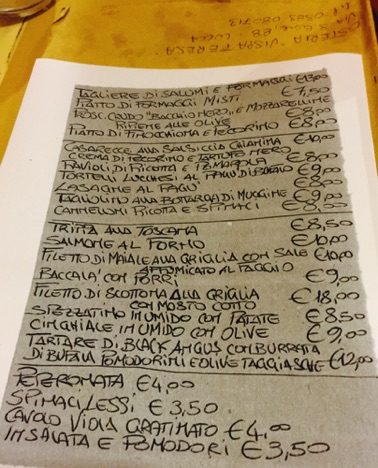 OSTERIA VISPA TERESA
TAGLIERE DI SALUMI E FORMAGGI €13,00
PIATTO DI FORMAGGI MISTI €7,50
PROSC. CRUDO "BACCHIO NERO" E MOZZARELLINE €8,00
RIPIENE ALLE OLIVE €8,00
PIATTO DI FINOCCHIONA E PECORINO
CASARECCE ALLA SALSICCIA CALAMINA €10,00
CREMA DI PECORINO E TARTUFO NERO
RAVIOLI DI RICOTTA E POMAROLA €8,00
TORTELLI LUCCHESI AL RAGU DI €9,00
LASAGNE AL RAGU' €8,00
TAGLIOLINO ALLA BOTTARGA DI MUGGINE €9,00
CANNELLONI RICOTTA E SPINACI
TRIPPA ALLA TOSCANA €8,50
SALMONE AL FORNO €10,00
FILETTO DI MAIALE ALLA GRIGLIA CON SALE €10,00
AFFUMICATO AL FAGGIO
BACCALA' CON PORRI €9,00
FILETTO DI SCOTTONA ALLA GRIGLIA €18,00
CON MOSTO COTTO
SPEZZATINO IN UMIDO CON PATATE €8,50
CINGHIALE IN UMIDO CON OLIVE €9,00
TARTARE DI BLACK ANGUS CON BURRATA
DI BUFALA POMODORINI E OLIVE TAGGIASCHE €12,00
PEPERONATA €4,00
SPINACI LESSI €3,50
CAVOLO VIOLA GRATINATO €4,00
INSALATA E POMODORI €3,50